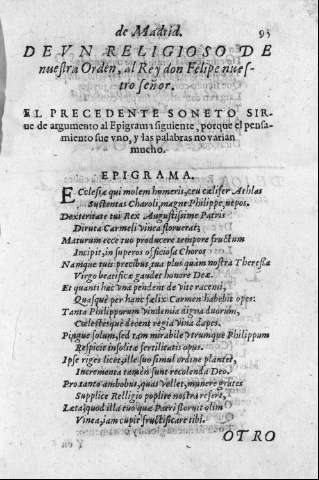 de Madrid. 93
DE VN RELIGIOSO DE
nuestra Orden, al Rey don Felipe nues-
tro señor.
EL PRECEDENTE SONETO SIR-
ue de argumento al Epigrama siguiente, porque el pensa-
miento fue vno, y las palabras no varian
mucho.
EPIGRAMA.
ECclesiæ qui molem humeris, ceu cælifer Athlas
Sustentas Charoli, magne Philippe, nepos.
Dexteritate tui Rex Augustissime Patris
Diruta Carmeli vinea floruerat;
Maturum ecce tuo producere tempore fructum
Incipit, in superos officiosa Choros
Namque tuis precibus, sua plus quàm nostra Theresia
Virgo beatificæ gaudet honore Deæ.
Et quanti hac vna pendent de vite racemi,
Quasque per hanc fælix Carmen habebit opes:
Tanta Philipporum vindemia digna duorum,
Cælestesque decent regia vina dapes.
Pingue solum, sed tam mirabile vtrumque Philippum
Respicit insolitæ fertilitatis opus.
Ipse riges licet, ille suo simul ordine plantet,
Incrementa tamen sunt recolenda Deo.
Pro tanto ambobus, quas vellet, munere grates
Supplice Relligio poplite nostra refert,
Læta, quod illa tuo quæ Patri floruit olim
Vinea, iam cupit fructificare tibi.
OTRO